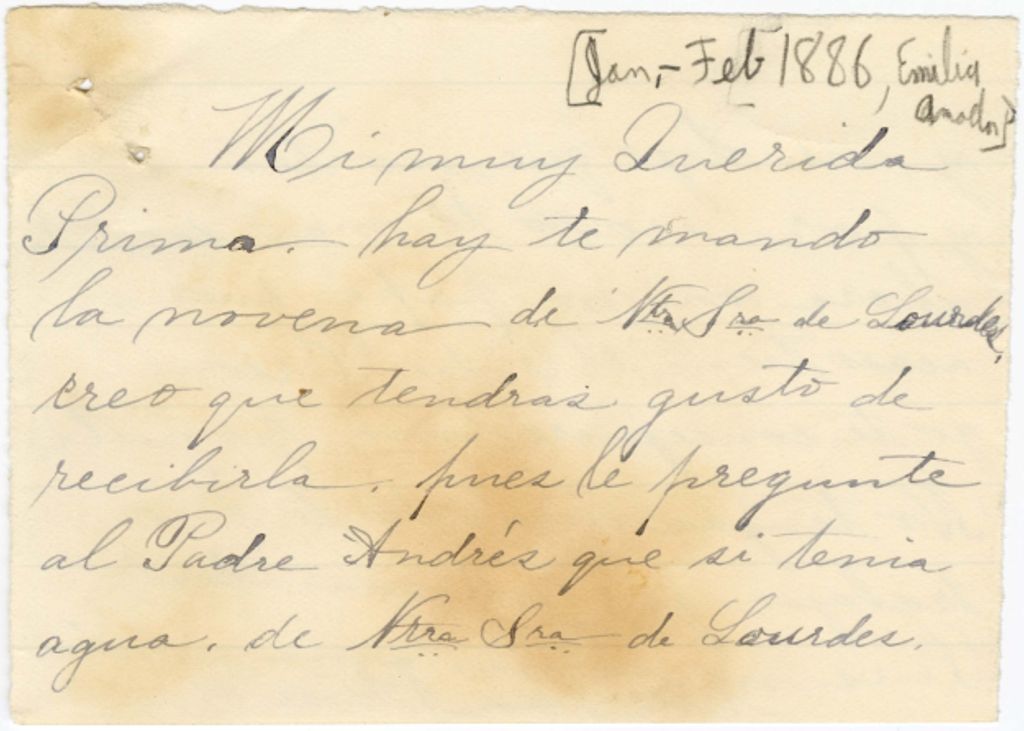 [Jan,- Feb 1886, Emilia
Amador]
Mi muy Querida
Prima. hay te mando
la novena de Ntra Sra de Lourdes,
creo que tendras gusto de
recibirla. pues le pregunte
al Padre Andrés que si tenia
agua. de Ntra Sra de Lourdes.